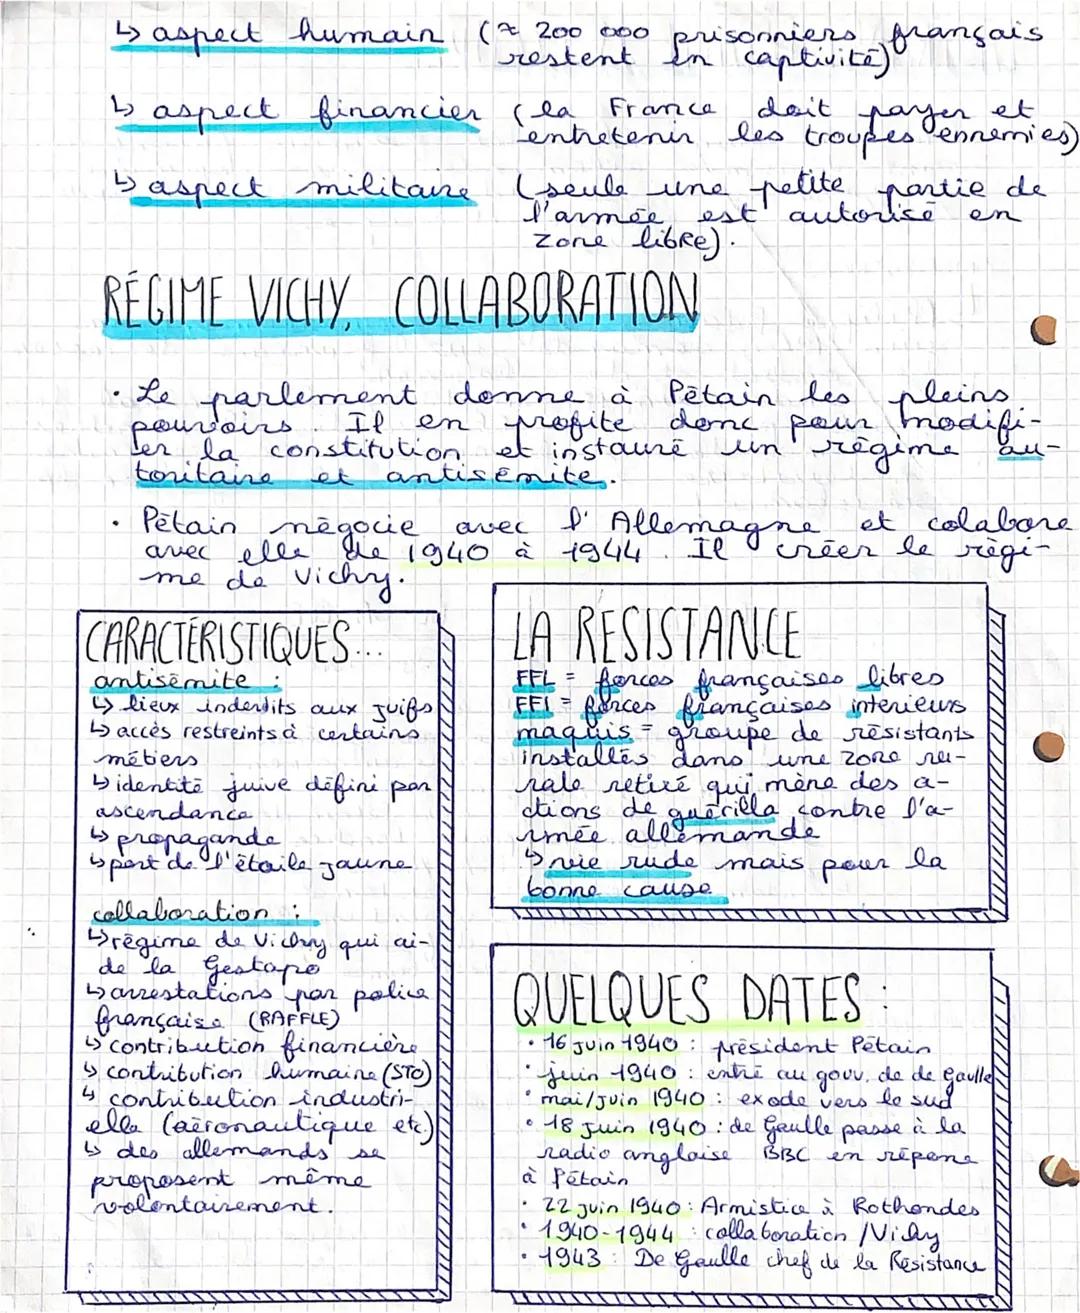 ↳ aspect humain (≈ 200 000 prisonniers français
restent en captivité)
↳ aspect financier (la France doit payer et
entretenir les troupes ennemies)
↳ aspect militaire (seule une petite partie de
l'armée est autorisé en
zone libre).
RÉGIME VICHY, COLLABORATION
• Le parlement donne à Pétain les pleins
pouvoirs. Il en profite donc pour modifi-
er la constitution et instauré un régime au-
toritaire et antisémite.
• Pétain négocie avec l'Allemagne et colabore
avec elle de 1940 à 1944. Il créer le régi-
me de Vichy.
CARACTÉRISTIQUES...
antisémite :
↳ lieux interdits aux juifs
↳ accès restreints à certains
métiers
↳ identité juive défini par
ascendance
↳ propagande
↳ port de l'étoile jaune
collaboration :
↳ régime de Vichy qui ai-
de la Gestapo
↳ arrestations par police
française (RAFFLE)
↳ contribution financière
↳ contribution humaine (STO)
↳ contribution industri-
elle (aéronautique etc)
↳ des allemands se
proposent même
volontairement.
LA RESISTANCE
FFL = forces françaises libres
FFI = forces françaises interieurs
maquis = groupe de résistants
installés dans une zone ru-
rale retiré qui mène des a-
ctions de guérilla contre l'a-
rmée allemande
↳ vie rude mais pour la
bonne cause
QUELQUES DATES :
• 16 juin 1940 : président Pétain
• juin 1940 : entré au gouv. de de Gaulle
• mai/juin 1940 : exode vers le sud
• 18 juin 1940 : de Gaulle passe à la
radio anglaise BBC en répons
à Pétain
• 22 juin 1940 : Armistice à Rothondes
• 1940-1944 : collaboration / Vichy
• 1943 : De Gaulle chef de la Résistance